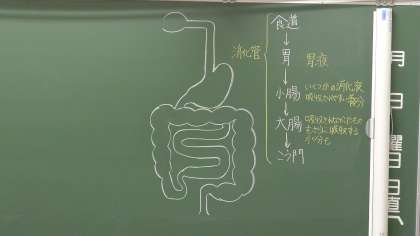 食道
↓
消化管
胃
胃液
↓
小腸
いくつかの消化液
吸収されやすい養分
↓
大腸
吸収されなかったもの
さらに吸収する
水分も
↓
こう門
月
日
曜
日
日
直